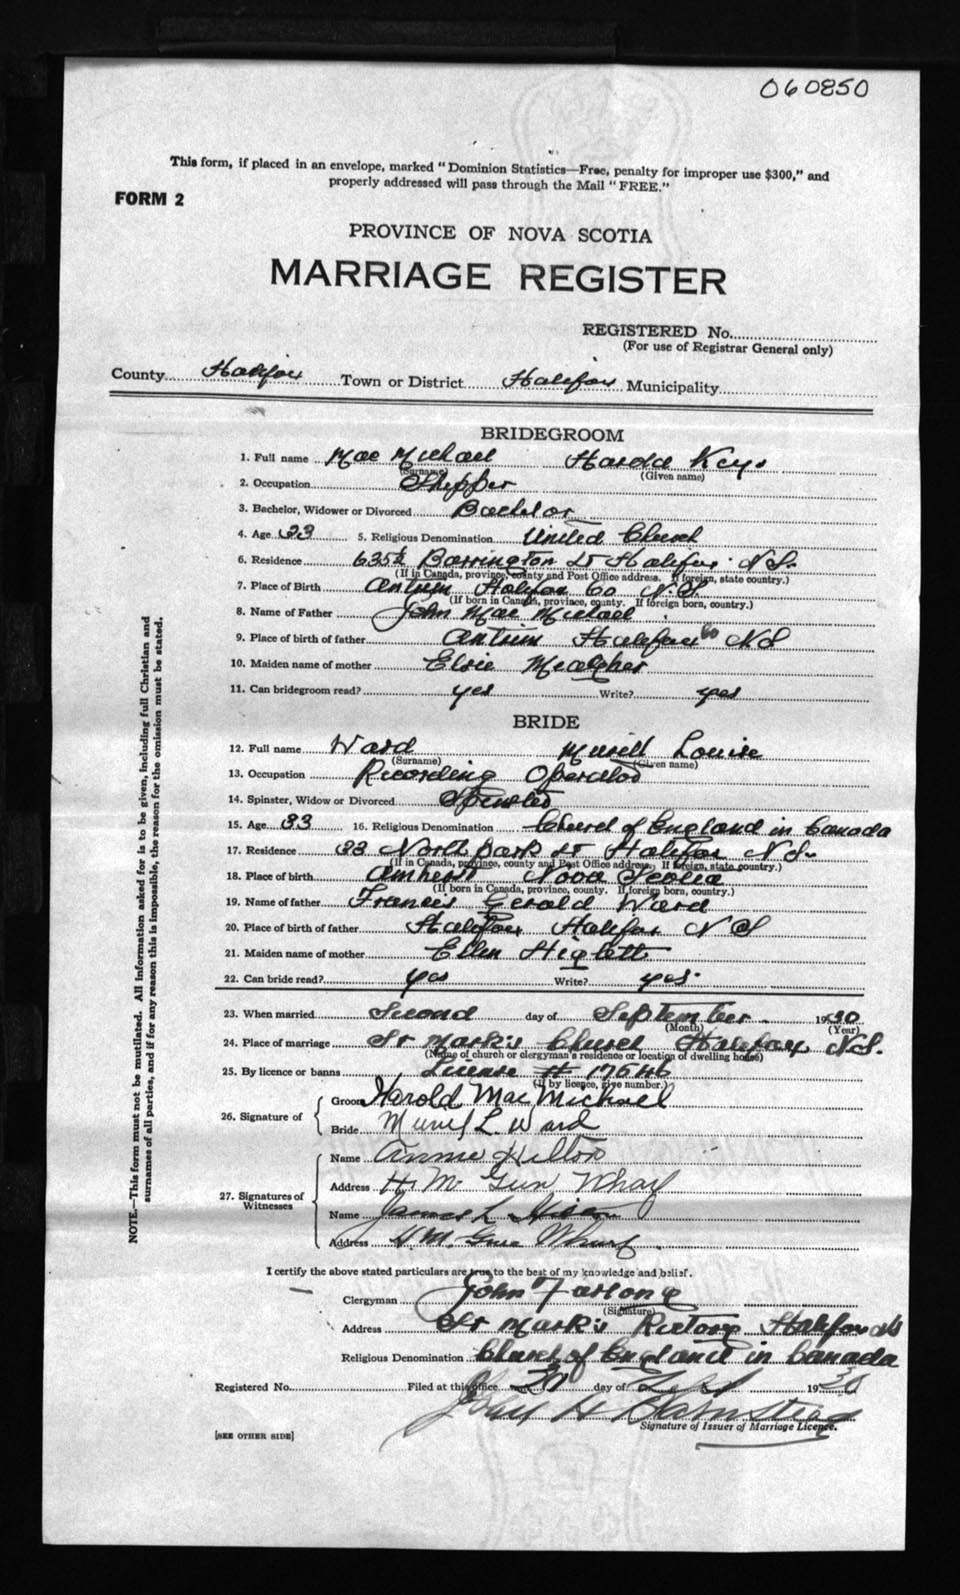 060850
This form, if placed in an envelope, marked "Dominion Statistics—Free, penalty for improper use $300," and
properly addressed will pass through the Mail "FREE."
FORM 2
PROVINCE OF NOVA SCOTIA
MARRIAGE REGISTER
REGISTERED No.
(For use of Registrar General only)
County Halifax Town or District Halifax Municipality
BRIDEGROOM
1. Full name Mac Michael Harold Keys
(Surname) (Given name)
2. Occupation Shipper
3. Bachelor, Widower or Divorced Bachelor
4. Age 33 5. Religious Denomination United Church
6. Residence 635½ Barrington St Halifax N.S.
(If in Canada, province, county and Post Office address. If foreign, state country.)
7. Place of Birth Antrim Halifax Co N.S.
(If born in Canada, province, county. If foreign born, country.)
8. Name of Father John Mac Michael
9. Place of birth of father Antrim Halifax Co N S
10. Maiden name of mother Elsie
11. Can bridegroom read? yes Write? yes
BRIDE
12. Full name Ward Muriel Louise
(Surname) (Given name)
13. Occupation Recording Operator
14. Spinster, Widow or Divorced Spinster
15. Age 33 16. Religious Denomination Church of England in Canada
17. Residence 33 North Park St Halifax N S.
(If in Canada, province, county and Post Office address. If foreign, state country.)
18. Place of birth Amherst Nova Scotia
(If born in Canada, province, county. If foreign born, country.)
19. Name of father Francis Gerald Ward
20. Place of birth of father Halifax Halifax N S
21. Maiden name of mother Ellen Higlett
22. Can bride read? yes Write? yes.
23. When married Second day of September 1930
(Month) (Year)
24. Place of marriage St Mark's Church Halifax N.S.
(Name of church or clergyman's residence or location of dwelling house)
25. By licence or banns License # 17546
(If by licence, give number.)
26. Signature of
Groom Harold MacMichael
Bride Muriel L. Ward
27. Signatures of Witnesses
Name Annie Hilton
Address H. M. Gun Wharf
Name James L
Address H.M. Gun Wharf.
I certify the above stated particulars are true to the best of my knowledge and belief.
Clergyman John Furlong
(Signature)
Address St Mark's Rectory Halifax N S
Religious Denomination Church of England in Canada
Registered No. Filed at this office 30 day of Sept 1930
Signature of Issuer of Marriage Licence.
[SEE OTHER SIDE]
NOTE.—This form must not be mutilated. All information asked for is to be given, including full Christian and
surnames of all parties, and if for any reason this is impossible, the reason for the omission must be stated.